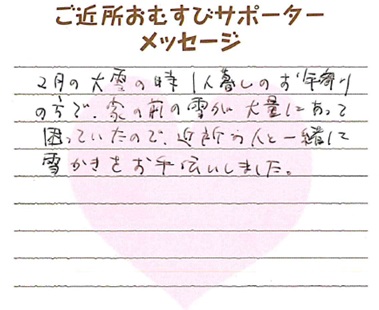 ご近所おむすびサポーター
メッセージ
2月の大雪の時1人暮しのお年寄り
の方で、家の前の雪が大量にあって
困っていたので、近所の人と一緒に
雪かきをお手伝いしました。